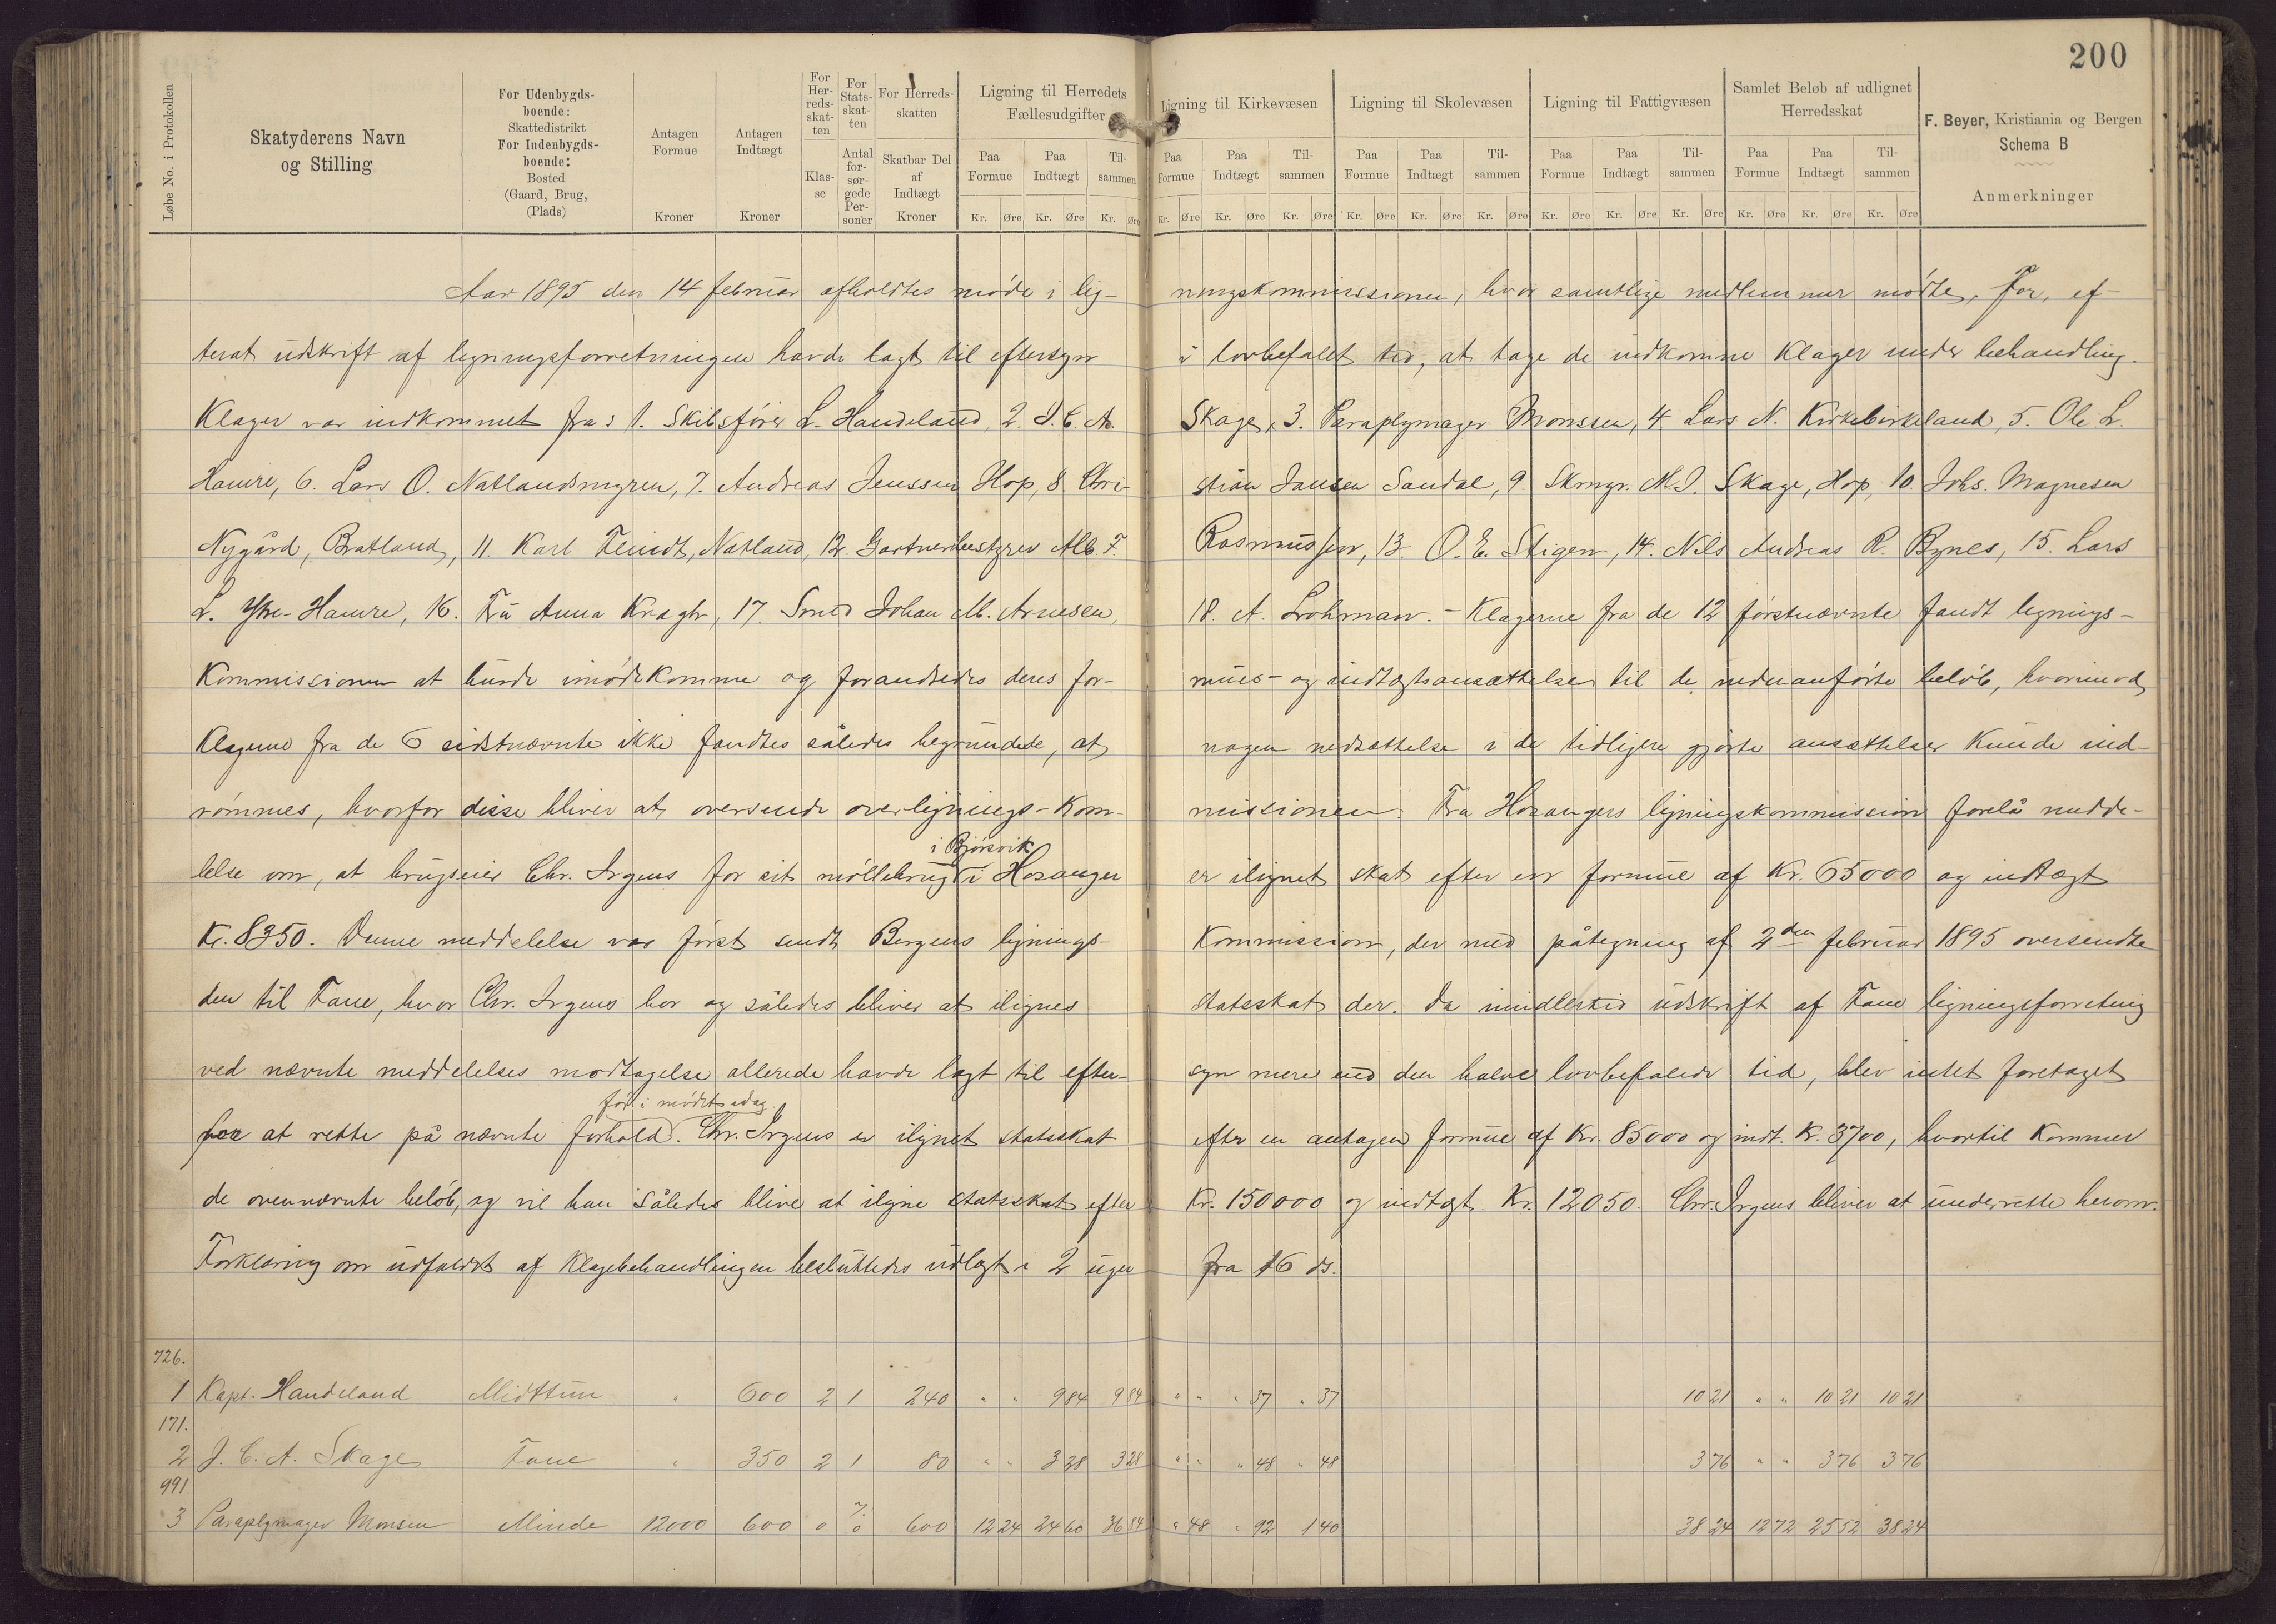 200
Løbe No. i Protokollen
Skatyderens Navn og Stilling
For Udenbygdsboende: Skattedistrikt For Indenbygdsboende: Bosted (Gaard, Brug, (Plads)
Antagen Formue Kroner
Antagen Indtægt Kroner
For Herredsskatten Klasse
For Statsskatten Antal forsørgede Personer
For Herredsskatten Skatbar Del af Indtægt Kroner
Ligning til Herredets Fællesudgifter Paa Formue Paa Indtægt Tilsammen Kr. Øre Kr. Øre Kr. Øre
Ligning til Kirkevæsen Paa Formue Paa Indtægt Tilsammen Kr. Øre Kr. Øre Kr. Øre
Ligning til Skolevæsen Paa Formue Paa Indtægt Tilsammen Kr. Øre Kr. Øre Kr. Øre
Ligning til Fattigvæsen Paa Formue Paa Indtægt Tilsammen Kr. Øre Kr. Øre Kr. Øre
Samlet Beløb af udlignet Herredsskat Paa Formue Paa Indtægt Tilsammen Kr. Øre Kr. Øre Kr. Øre
F. Beyer, Kristiania og Bergen
Schema B
Anmerkninger
Aar 1895 den 14 februar afholdtes møde i lig- ningskommissionen, hvor samtlige medlemmer mødte, for, ef-
terat udskrift af ligningsforretningen havde lagt til eftersyn i lovbefalet tid, at tage de indkomne klager under behandling.
Klager var indkommet fra: 1. Skibsfører L. Handeland, 2. J. C. A. Skage, 3. Paraplymager Monssen, 4. Lars N. Kirkebirkeland, 5. Ole L.
Hamre, 6. Lars O. Natlandsmyren, 7. Andreas Jenssen Hop, 8. Chri- stian Jansen Sandal, 9. Skmgr. M. J. Skage, Hop, 10. Johs. Magnesen
Nygård, Bratland, 11. Karl Flindt, Natland, 12. Gartnerbestyrer Alb. F. Rasmussen, 13. O. E. Stigen, 14. Nils Andreas R. Bynes, 15. Lars
L. Ytre-Hamre, 16. Fru Anna Kragh, 17. Smed Johan M. Arnesen, 18. A. Lohman. - Klagerne fra de 12 førstnævnte fandt lignings-
kommissionen at burde imødekomme og forandredes deres for- mues- og indtægtsansættelser til de nedenanførte beløb, hvorimod
klagerne fra de 6 sidstnævnte ikke fandtes således begrundede, at nogen nedsættelse i de tidligere gjorte ansættelser kunde ind-
rømmes, hvorfor disse bliver at oversende overlignings-kom- missionen. Fra Hosangers ligningskommission forelå medde-
i Bjørsvik
lelse om, at brugseier Chr. Irgens for sit møllebrug i Hosanger er ilignet skat efter en formue af Kr. 65000 og indtægt
Kr. 8350. Denne meddelelse var først sendt Bergens lignings- kommission, der med påtegning af 2den februar 1895 oversendte
den til Fane, hvor Chr. Irgens bor og således bliver at ilignes statsskat der. Da imidlertid udskrift af Fane ligningsforretnig
ved nævnte meddelelses modtagelse allerede havde lagt til efter- syn mere end den halve lovbefalede tid, blev intet foretaget
før i mødet idag.
for at rette på nævnte forhold. Chr. Irgens er ilignet statsskat efter en antagen formue af Kr. 85000 og indt. Kr. 3700, hvortil kommer
de ovennævnte beløb, og vil han således blive at iligne statsskat efter Kr. 150000 og indtægt Kr. 12050. Chr. Irgens bliver at underrette herom.
Forklaring om udfaldet af klagebehandlingen besluttedes udlagt i 2 uger fra 16 ds.
726.
1 Kapt. Handeland Midttun " 600 2 1 240 " " 9 84 9 84 " " " 37 " 37 10 21 " " 10 21 10 21
171.
2 J. C. A. Skage Fane " 350 2 1 80 " " 3 28 3 28 " " " 48 " 48 3 76 " " 3 76 3 76
991
3 Paraplymager Monsen Minde 12000 600 0 0 600 12 24 24 60 36 84 " 48 " 92 1 40 38 24 12 72 25 52 38 24